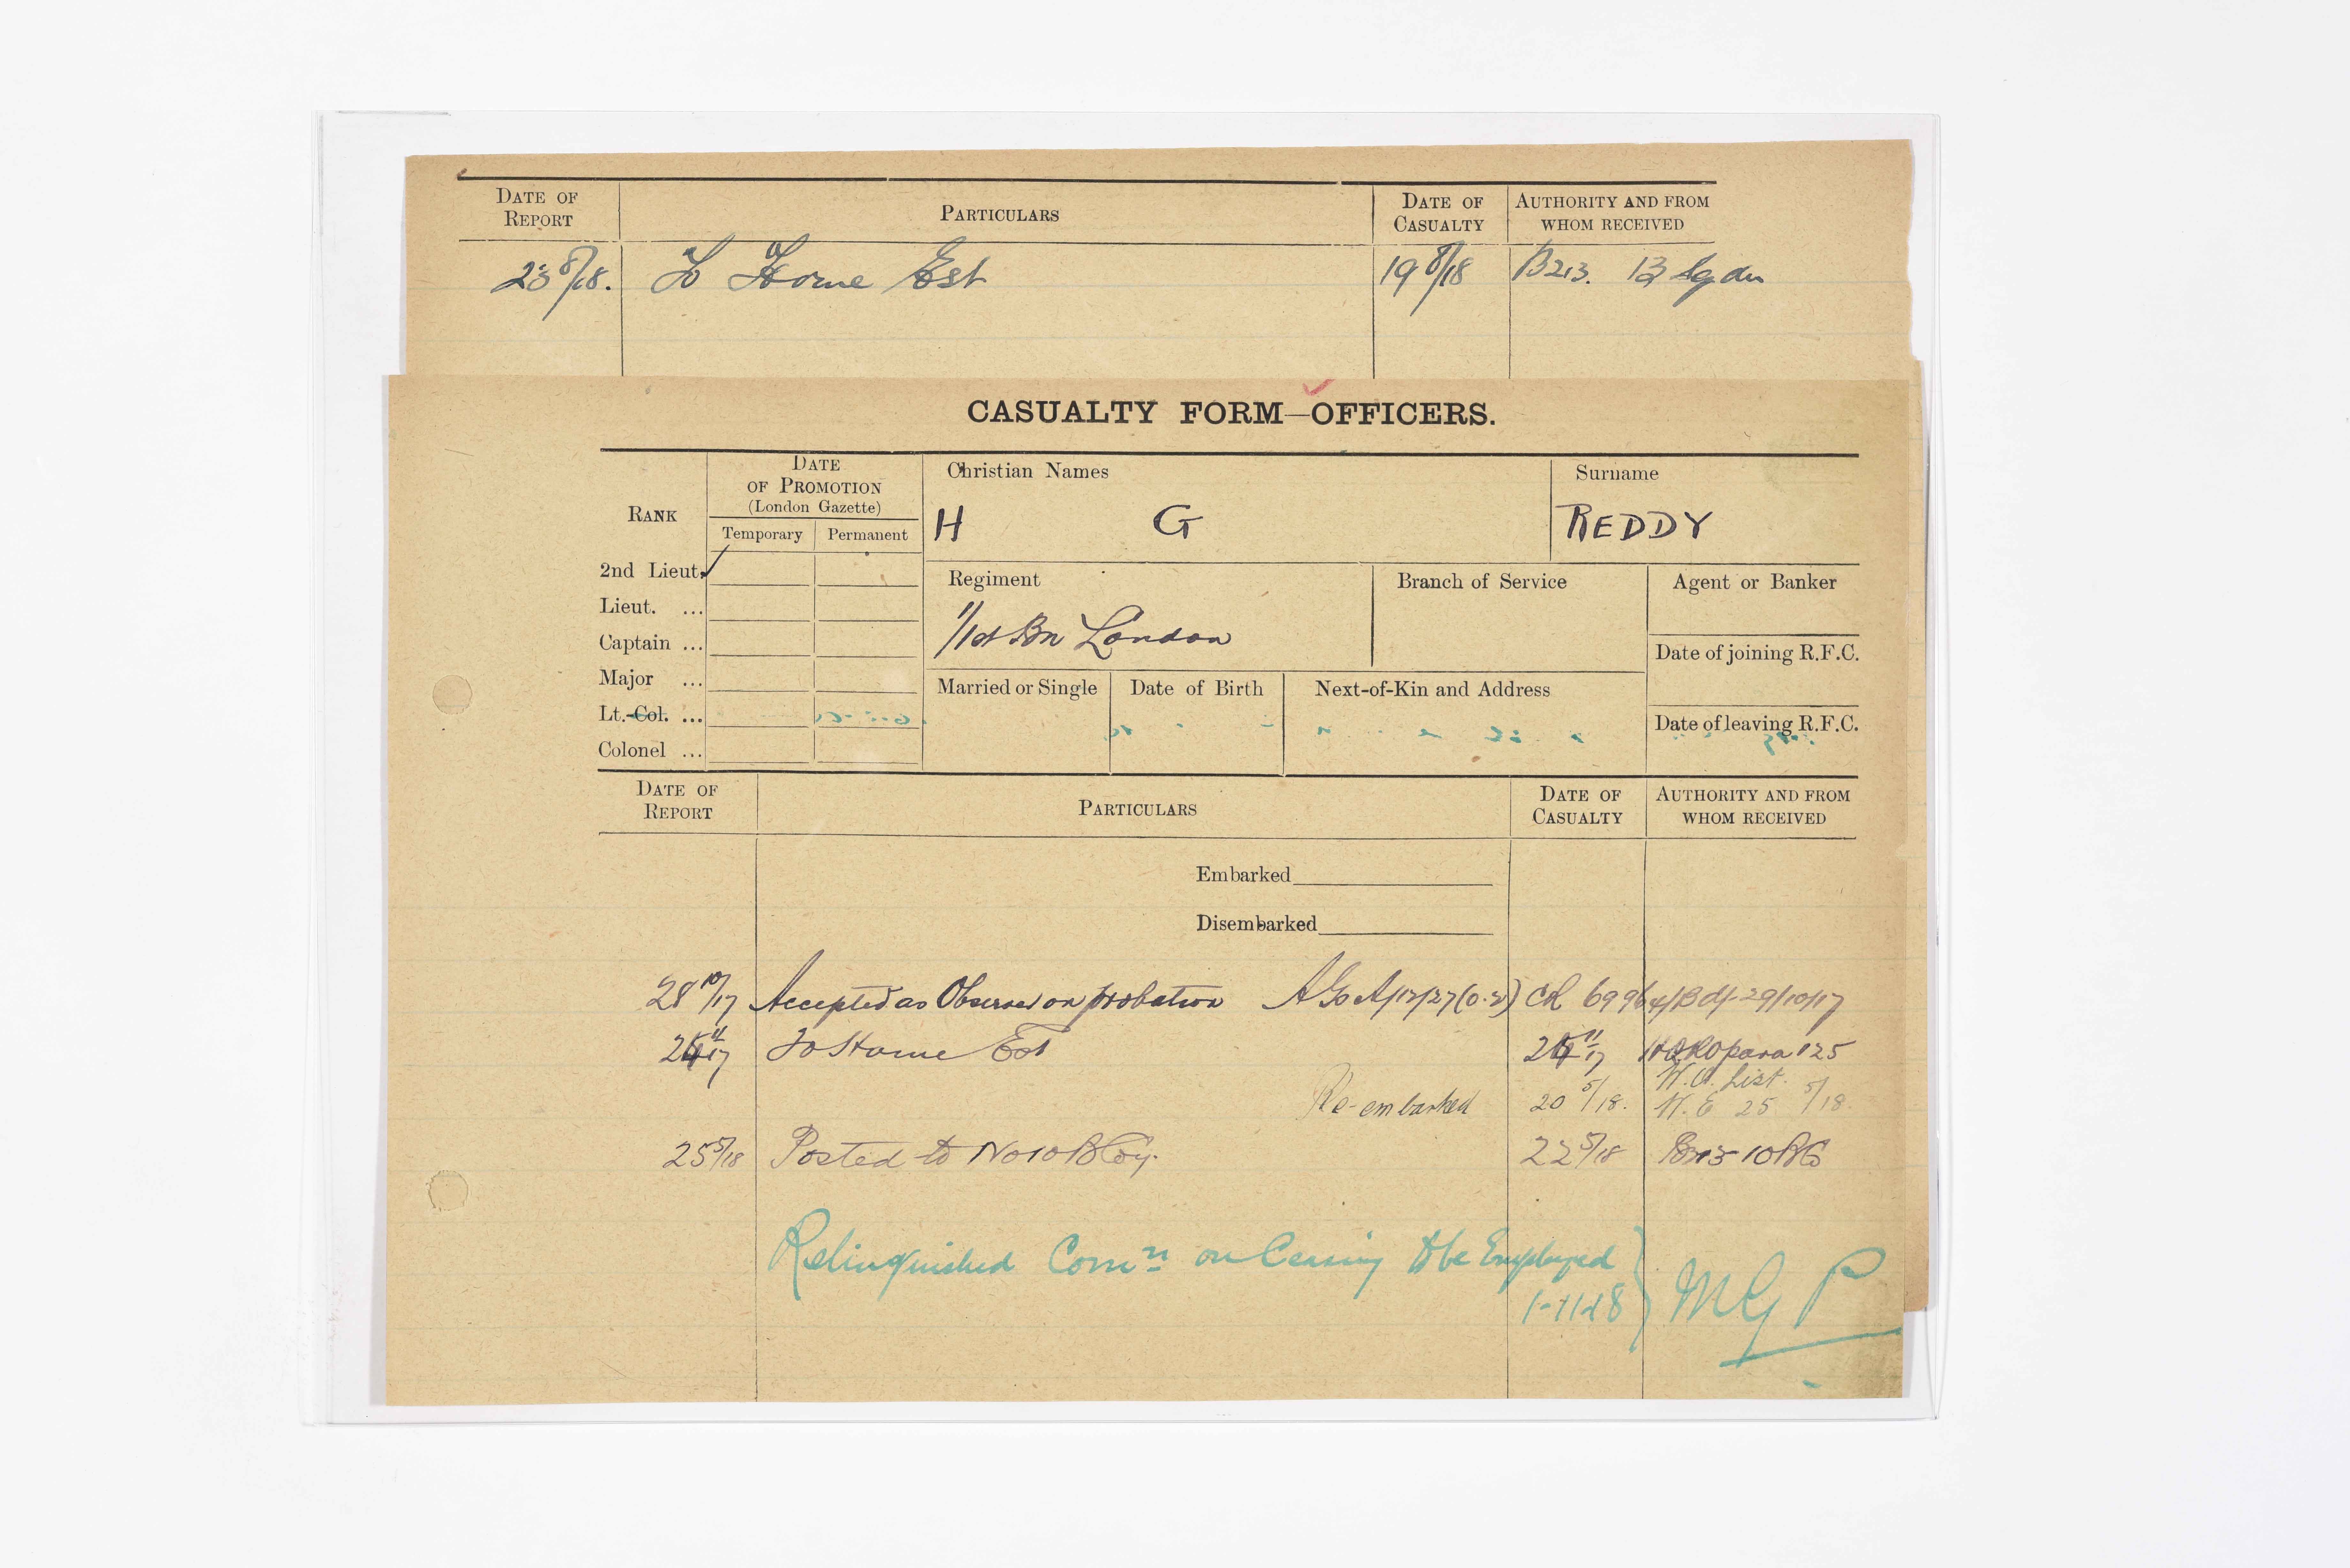 DATE OF REPORT PARTICULARS DATE OF CASUALTY AUTHORITY AND FROM WHOM RECEIVED
23 8/18. To Home Est 19 8/18 B213. 13 Sqdn
CASUALTY FORM—OFFICERS.
RANK
DATE OF PROMOTION
(London Gazette)
Temporary Permanent
Christian Names
H G
Surname
REDDY
2nd Lieut.
Lieut. ...
Captain ...
Major ...
Lt.-Col. ...
Colonel ...
Regiment
1/1st Bn London
Branch of Service
Agent or Banker
Date of joining R.F.C.
Married or Single
Date of Birth
Next-of-Kin and Address
Date of leaving R.F.C.
DATE OF REPORT PARTICULARS DATE OF CASUALTY AUTHORITY AND FROM WHOM RECEIVED
Embarked
Disembarked
28 10/17 Accepted as Observer on probation CR 69964/B df 29/10/17
To Home Est para 125
Re-embarked 20 5/18. W.O. List. W.E 25 5/18.
25 5/18 Posted to No 10 B Coy. 22 5/18
Relinquished Comn on Ceasing to be Employed
1-11-18 MGP